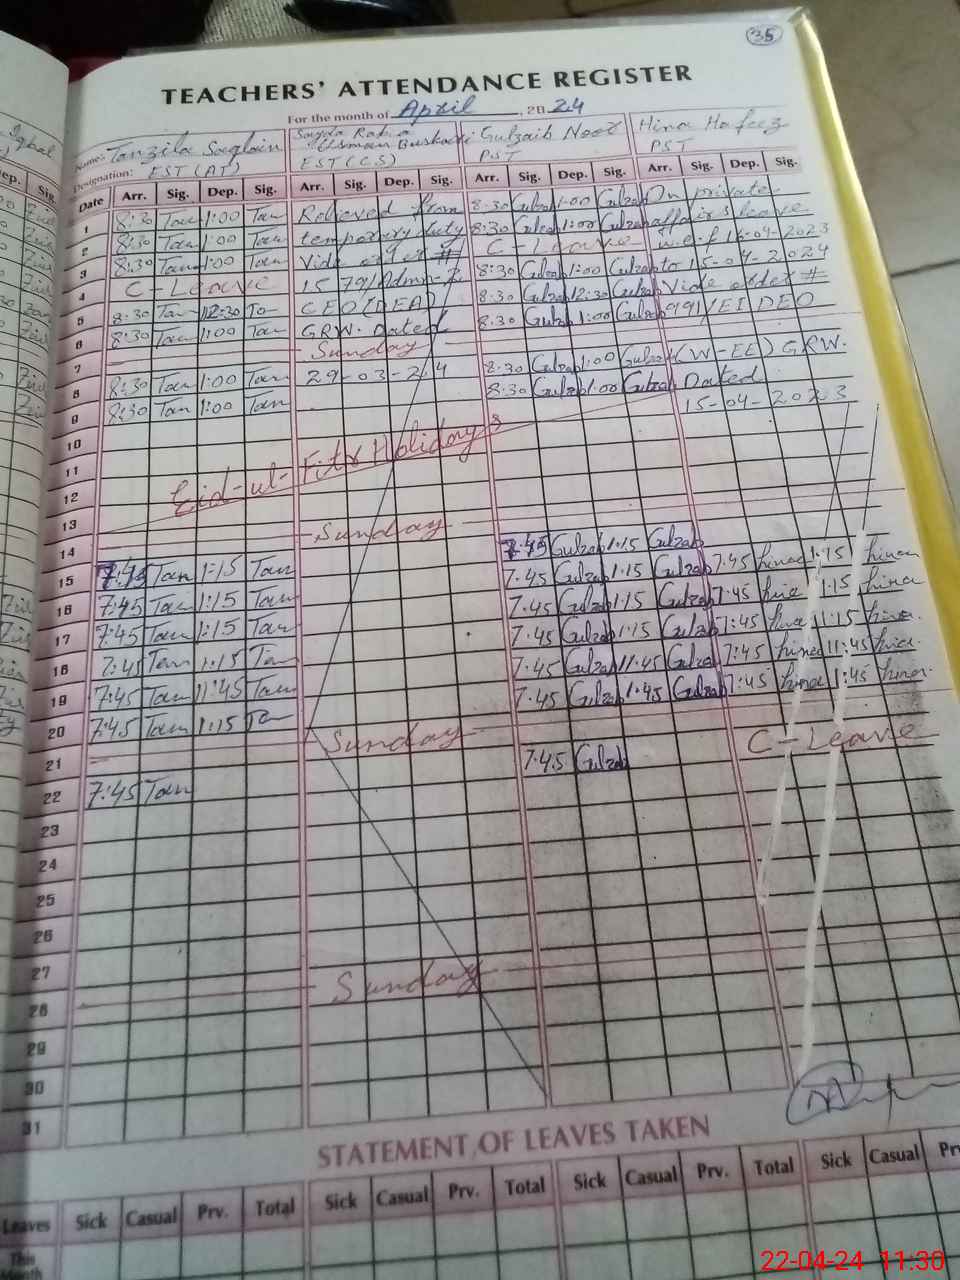 35
TEACHERS' ATTENDANCE REGISTER
For the month of April, 2024
Name: Tanzila Saqlain Syeda Rabia Usman Gulzaib Noor Hina Hafeez
Designation: EST (AT) EST (C.S) PST PST
Date Arr. Sig. Dep. Sig. Arr. Sig. Dep. Sig. Arr. Sig. Dep. Sig. Arr. Sig. Dep. Sig.
1 8:30 Tan 1:00 Tan Relieved from 8:30 Gulzab 1:00 Gulzab On private
2 8:30 Tan 1:00 Tan temporary duty 8:30 Gulzab 1:00 Gulzab affairs leave
3 8:30 Tan 1:00 Tan Vide order # C-Leave w.e.f 16-04-2023
4 C-Leave 1579/Admn- 8:30 Gulzab 1:00 Gulzab to 15-04-2024
5 8:30 Tan 12:30 Tan CEO (DEA) 8:30 Gulzab 12:30 Gulzab Vide order #
6 8:30 Tan 1:00 Tan GRW. Dated 8:30 Gulzab 1:00 Gulzab 991/EI DEO
7 Sunday
8 8:30 Tan 1:00 Tan 29-03-24 8:30 Gulzab 1:00 Gulzab (W-EE) GRW.
9 8:30 Tan 1:00 Tan 8:30 Gulzab 1:00 Gulzab Dated
10 15-04-2023
11 Eid-ul-Fitr Holidays
12
13
14 Sunday
15 7:45 Tan 1:15 Tan 7:45 Gulzab 1:15 Gulzab 7:45 hina 1:15 hina
16 7:45 Tan 1:15 Tan 7.45 Gulzab 1:15 Gulzab 7:45 hina 1:15 hina
17 7:45 Tan 1:15 Tan 7.45 Gulzab 1:15 Gulzab 7:45 hina 1:15 hina
18 7:45 Tan 1:15 Tan 7.45 Gulzab 1:15 Gulzab 7:45 hina 11:45 hina
19 7:45 Tan 11:45 Tan 7.45 Gulzab 11:45 Gulzab 7:45 hina 1:45 hina
20 7:45 Tan 1:15 Tan 7.45 Gulzab 1:45 Gulzab
21 Sunday C-Leave
22 7:45 Tan 7.45 Gulzab
23
24
25
26
27
28 Sunday
29
30
31
STATEMENT OF LEAVES TAKEN
Leaves Sick Casual Prv. Total Sick Casual Prv. Total Sick Casual Prv. Total Sick Casual
This Month
22-04-24 11:30